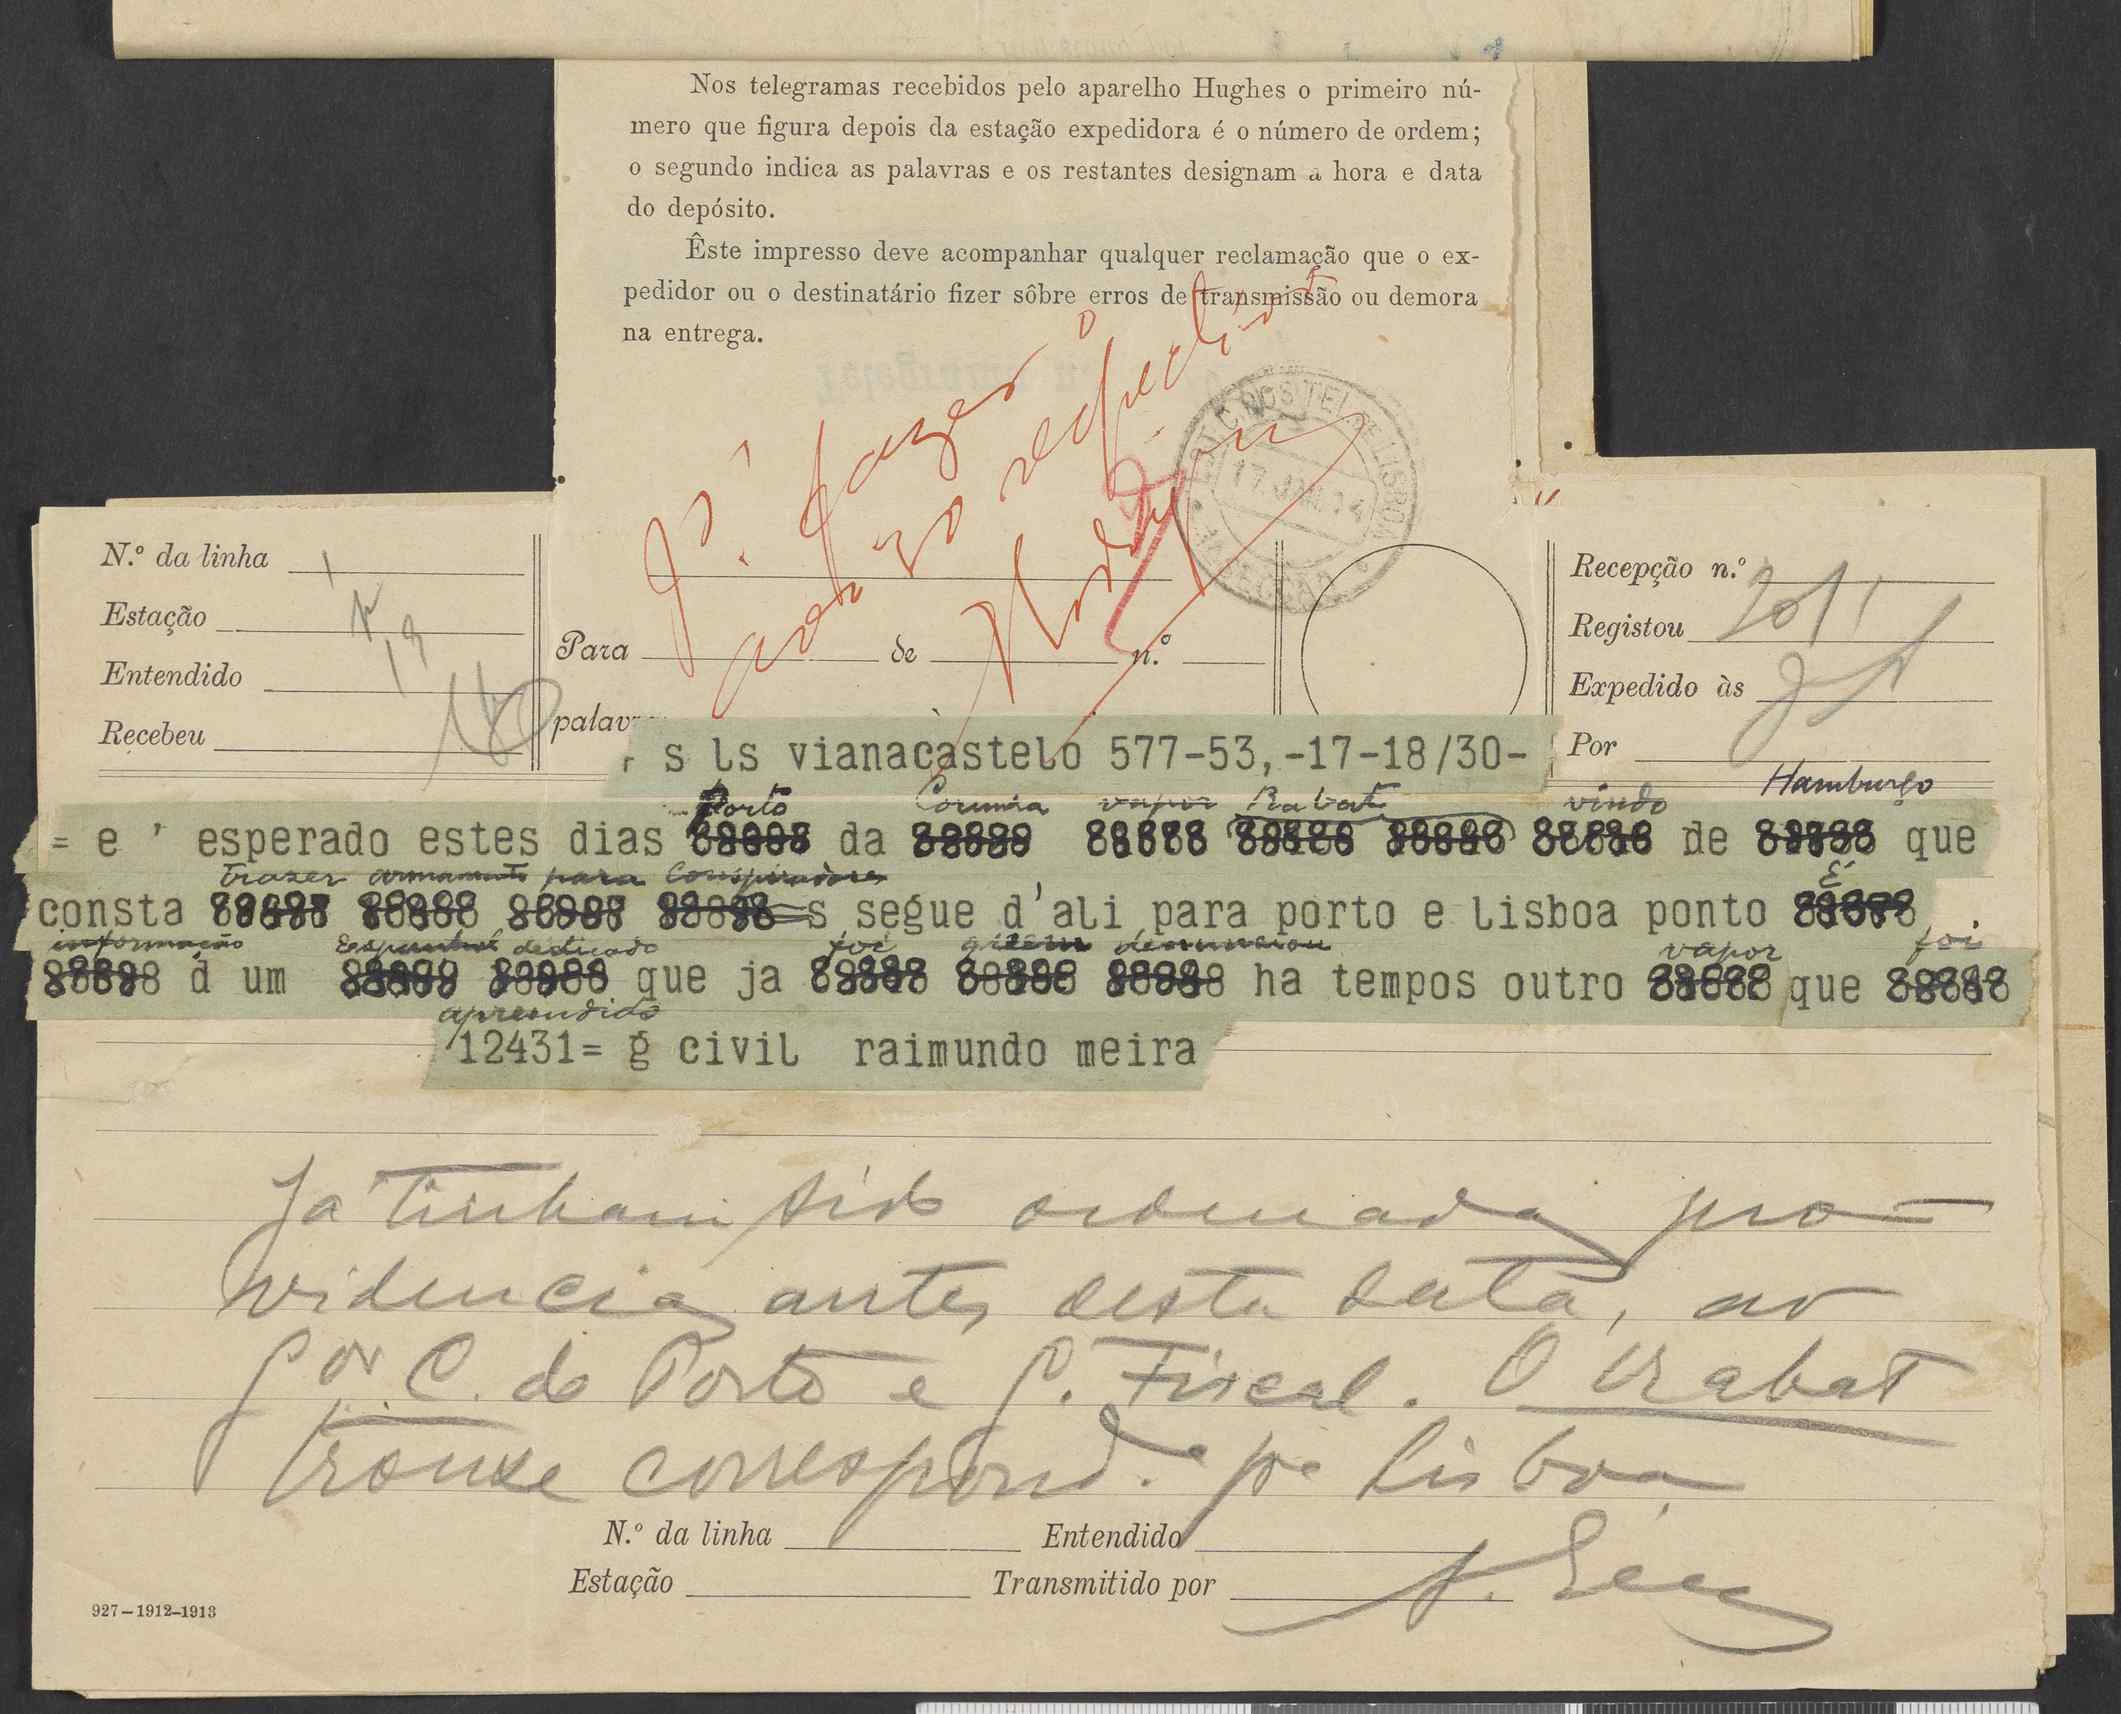 Nos telegramas recebidos pelo aparelho Hughes o primeiro nú-
mero que figura depois da estação expedidora é o número de ordem;
o segundo indica as palavras e os restantes designam a hora e data
do depósito.
Êste impresso deve acompanhar qualquer reclamação que o ex-
pedidor ou o destinatário fizer sôbre erros de transmissão ou demora
na entrega.
fazer o
ao respectivo
17 JAN. 14
N.º da linha 1
Estação
Entendido
Recebeu
Para de n.º
palav
Recepção n.º
Registou 2011
Expedido às
Por
s ls vianacastelo 577-53,-17-18/30-
Porto Corunha vapor Rabat vindo Hamburgo
= e ' esperado estes dias da de que
trazer armamento para Conspiradores É
consta s segue d'ali para porto e lisboa ponto
informação Espanhol dedicado foi quem denunciou vapor foi
d um que ja ha tempos outro que
apreendido
12431= g civil raimundo meira
Ja tinham sido ordenadas pro-
videncias antes desta data, ao
Gor C. do Porto e G. Fiscal. O Rabat
trouxe correspond.a pa Lisboa
N.º da linha Entendido
Estação Transmitido por
927-1912-1913